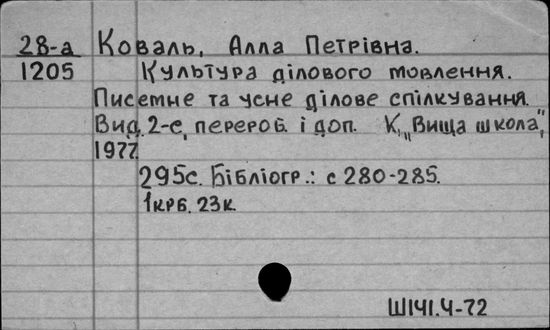 28-а Коваль, Алла Петрівна.
1205 Культура ділового мовлення.
Писемне та усне ділове спілкування.
Вид. 2-е, перероб. і доп. К., "Вища школа",
1977.
295с. Бібліогр.: с 280-285.
1крб. 23к.
Ш141.4-72